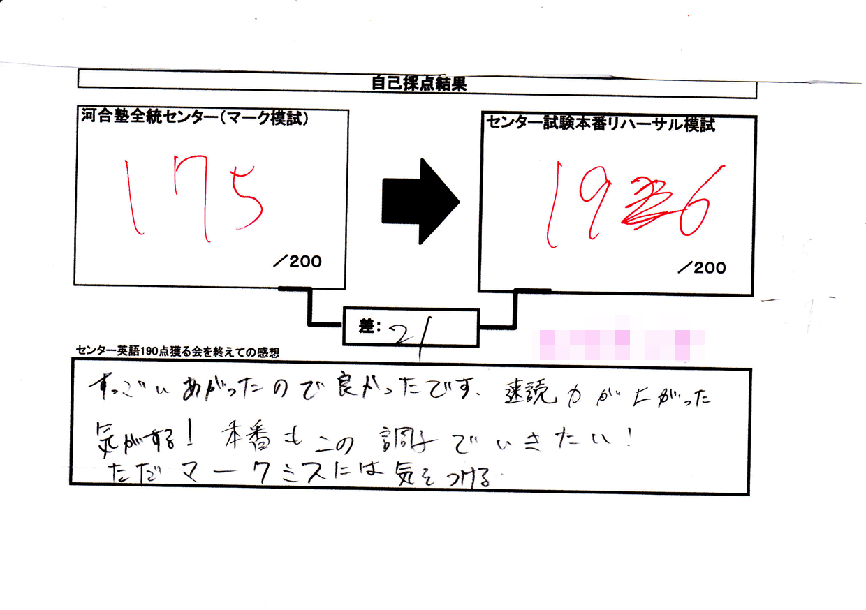 自己採点結果
河合塾全統センター(マーク模試)
175
／200
センター試験本番リハーサル模試
196
／200
差: 21
センター英語190点獲る会を終えての感想
すっごいあがったので良かったです、速読力が上がった
気がする!本番もこの調子でいきたい!
ただマークミスには気をつける.